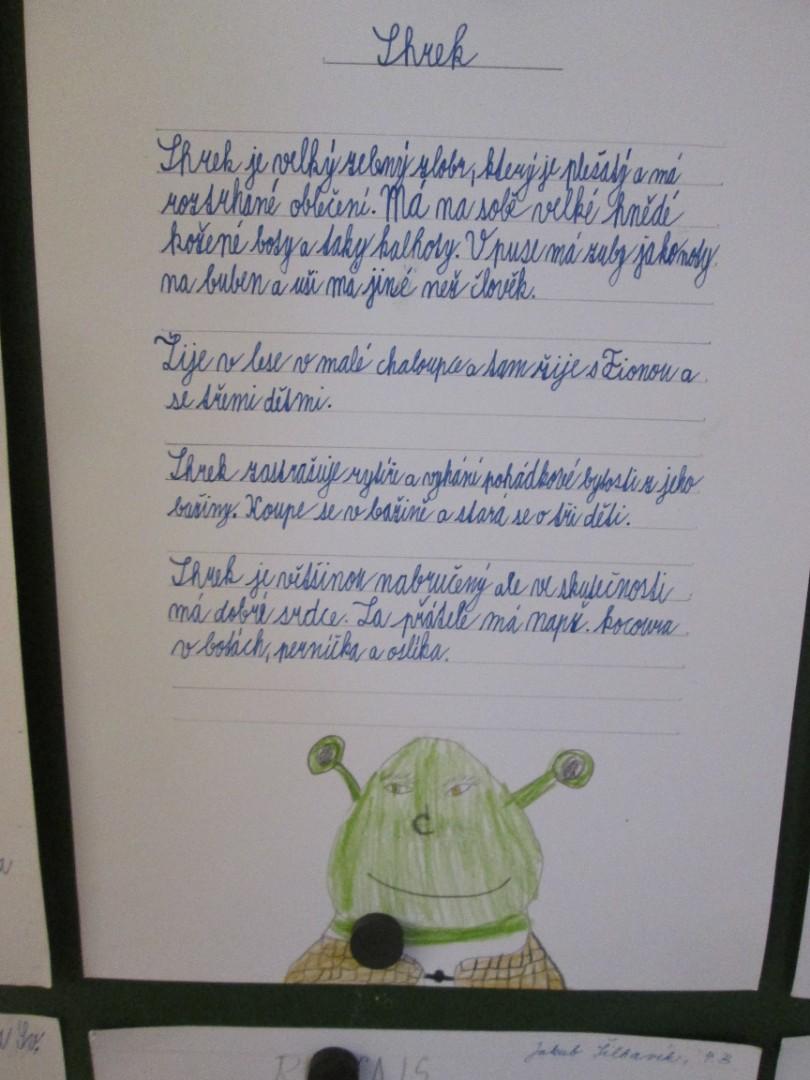 Shrek
Shrek je velký zelený zlobr, který je plešatý a má
roztrhané oblečení. Má na sobě velké hnědé
kožené boty a taky kalhoty. V puse má zuby jako noty
na buben a uši ma jiné než člověk.
Žije v lese v malé chaloupce a tam žije s Fionou a
se třemi dětmi.
Shrek zastrašuje rytíře a vyhání pohádkové bytosti z jeho
bažiny. Koupe se v bažině a stará se o tři děti.
Shrek je většinou nabručený ale ve skutečnosti
má dobré srdce. Za přátele má např. kocoura
v botách, perníčka a oslíka.
Jakub